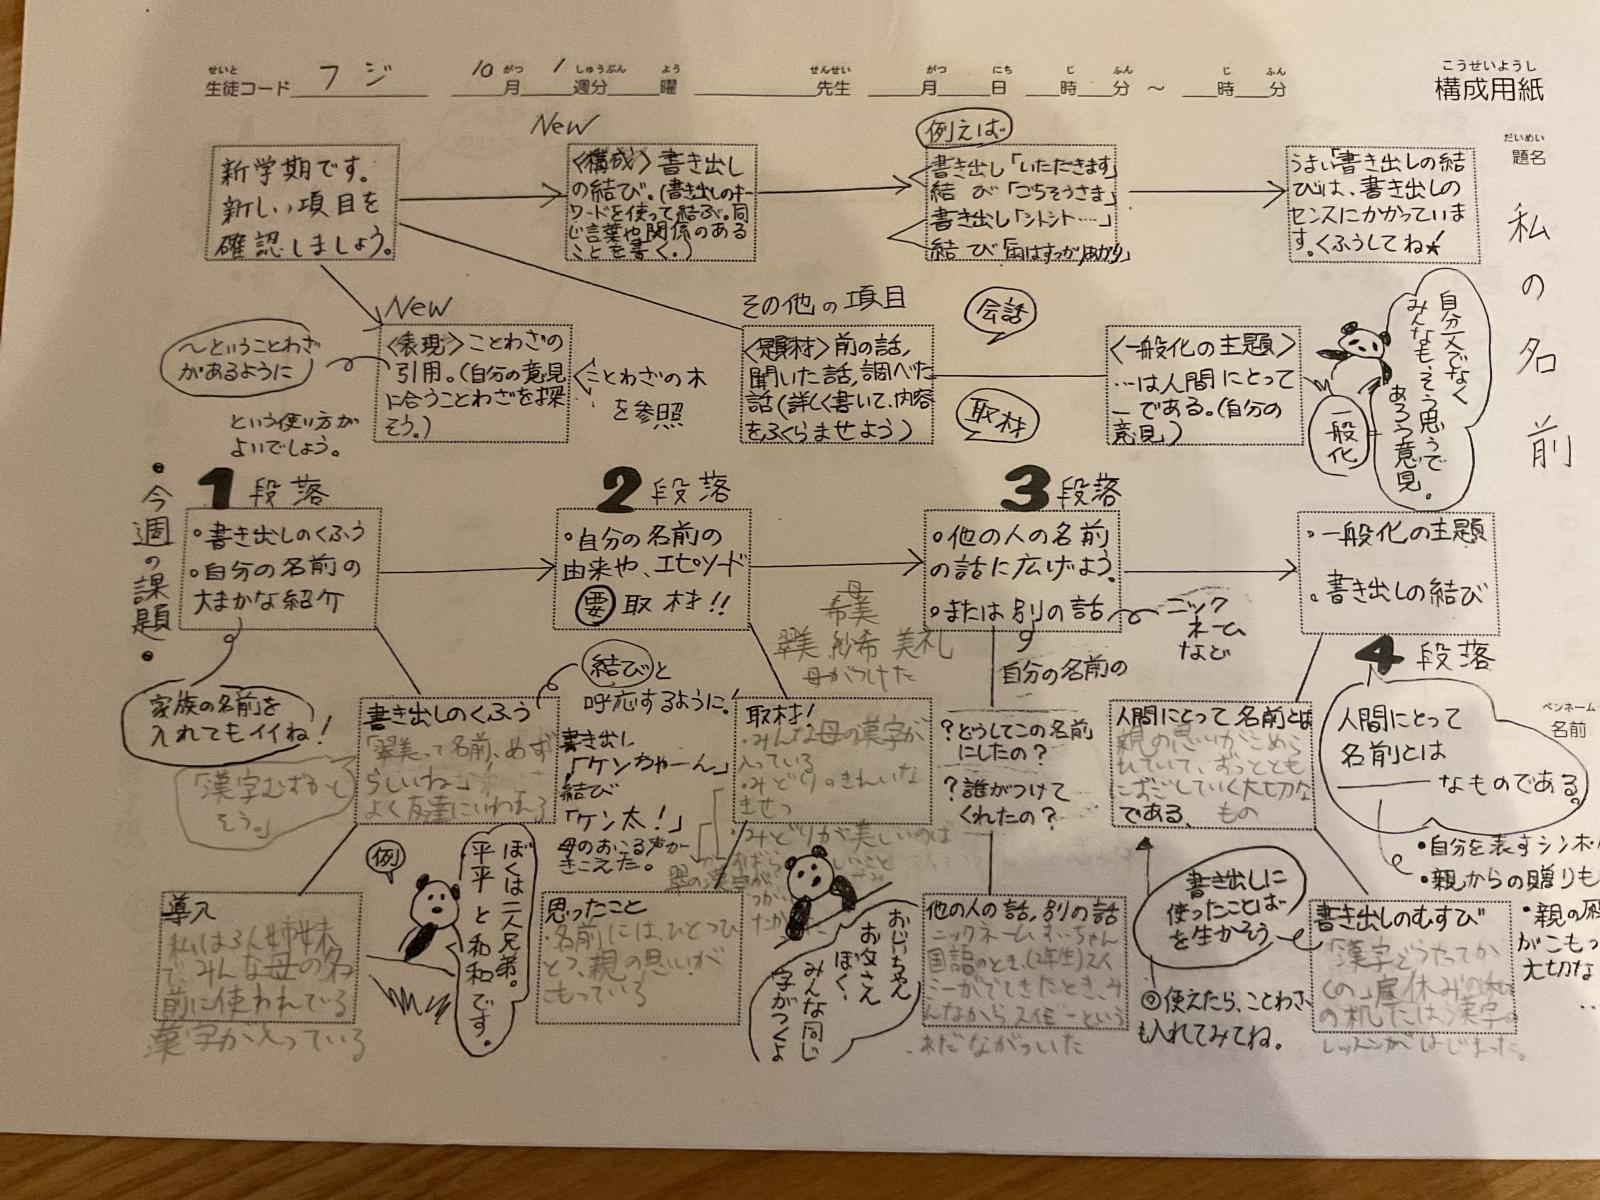 せいと
生徒コード フジ
がつ しゅうぶん よう
10月 1週分 曜
せんせい
先生
がつ にち じ ふん じ ふん
月 日 時 分 ～ 時 分
こうせいようし
構成用紙
だいめい
題名
私の名前
新学期です。
新しい項目を
確認しましょう。
New
〈構成〉書き出し
の結び。(書き出しのキー
ワードを使って結ぶ。同
じ言葉や関係のある
ことを書く。)
例えば
書き出し「いただきます」
結び「ごちそうさま」
書き出し「シトシト…」
結び「雨はすっかりあがり」
うまい「書き出しの結
びは、書き出しの
センスにかかっていま
す。くふうしてね★
New
〈表現〉ことわざの
引用。(自分の意見
に合うことわざを探
そう。)
～ということわざ
があるように
という使い方が
よいでしょう。
ことわざの木
を参照
その他の項目
〈題材〉前の話,
聞いた話,調べた
話(詳しく書いて、内容
をふくらませよう)
会話
取材
〈一般化の主題〉
…は人間にとって
―である。(自分の
意見)
一般化
自分一人でなく
みんなも、そう思うで
あろう意見。
・今週の課題・
1段落
・書き出しのくふう
・自分の名前の
大まかな紹介
2段落
・自分の名前の
由来や、エピソード
要取材!!
3段落
・他の人の名前
の話に広げよう。
・または別の話
ニック
ネーム
など
自分の名前の
・一般化の主題
・書き出しの結び
4段落
母
希美
翠美 紗希 美礼
母がつけた
家族の名前を
入れてもイイね!
「漢字むずかし
そう。」
書き出しのくふう
「翠美って名前、めず
らしいね」
よく友達にいわれる
結びと
呼応するように!
書き出し
「ケンちゃーん」
結び
「ケン太!」
母のおこる声が
きこえた。
取材!
・みんな母の漢字が
入っている
・みどりのきれいな
きせつ
・みどりが美しいのは
?どうしてこの名前
にしたの?
?誰がつけて
くれたの?
人間にとって名前とは
親の思いがこめら
れていて、ずっととも
にすごしていく大切な
もの
である、
人間にとって
名前とは
――なものである。
・自分を表すシンボ
・親からの贈りも
がこもっ
大切な
…
ペンネーム
名前
導入
私は3人姉妹
で、みんな母の名
前に使われてる
漢字が入っている
例
ぼくは二人兄弟。
平平と和和です。
思ったこと
名前には、ひとつひ
とつ、親の思いが
こもっている
おじいちゃん
お父さん
ぼく、
みんな同じ
字がつくよ
他の人の話,別の話
国語のとき、(2年生)スイ
ミーがでてきたとき、み
んなからスイミーという
あだながついた
書き出しに
使ったことば
を生かそう
◎使えたら、ことわざ
も入れてみてね。
書き出しのむすび
「漢字どうたってか
くの」昼休みの私
の机では漢字の
レッスンがはじまった。